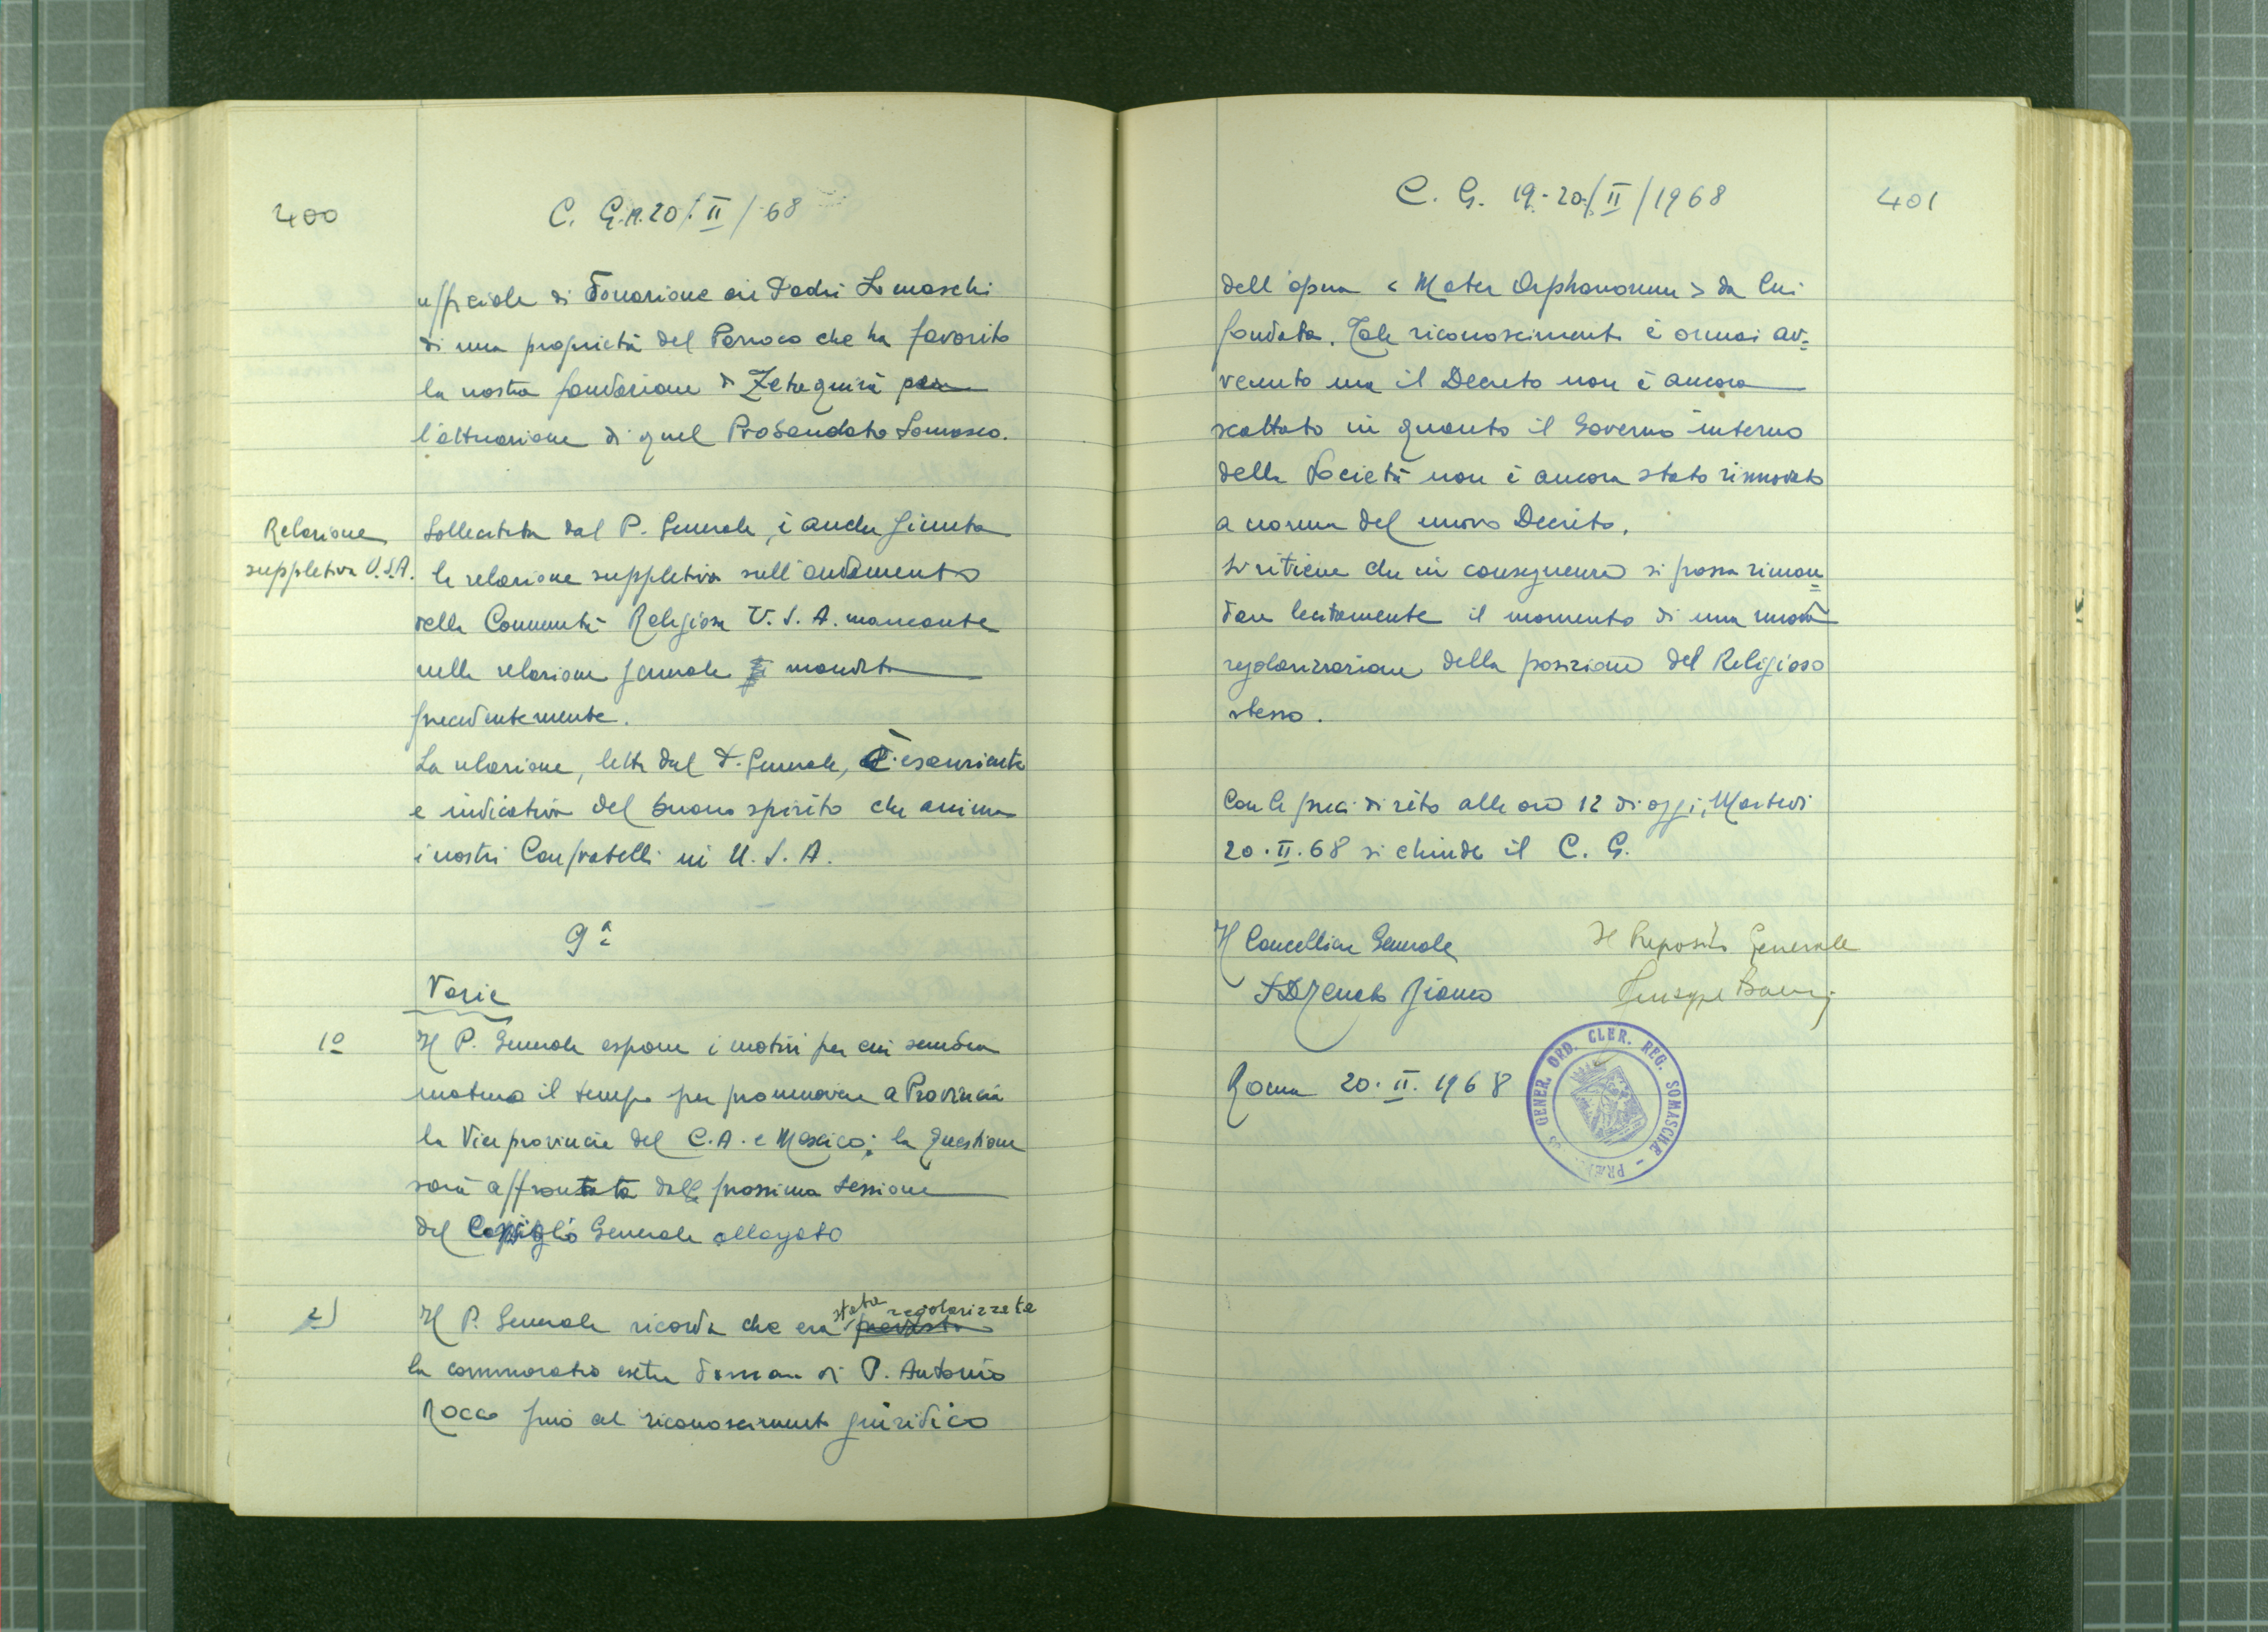 400
C. G. 19.20/II/68
ufficiale di Donazione ai Padri Somaschi
di una proprietà del Parroco che ha favorito
la nostra fondazione di Zetaquirà per
l'attuazione di quel Probandato Somasco.
Relazione
suppletiva U.S.A.
Sollecitata dal P. Generale, è anche giunta
la relazione suppletiva sull'andamento
della Comunità Religiosa U.S.A. mancante
nella relazione generale mandata
precedentemente.
La relazione, letta dal P. Generale, è esauriente
e indicativa del buono spirito che anima
i nostri Confratelli in U.S.A.
9ª
Varie
1º
Il P. Generale espone i motivi per cui sembra
maturo il tempo per promuovere a Provincia
la Viceprovincia del C.A. e Mexico; la questione
sarà affrontata dalla prossima sessione
del Consiglio Generale allargato
2)
Il P. Generale ricorda che era stata regolarizzata prevista
la commoratio extra domum di P. Antonio
Rocco fino al riconoscimento giuridico
C. G. 19-20/II/1968
401
dell'opera < Mater Orphanorum > da lui
fondata. Tale riconoscimento è ormai av=
venuto ma il Decreto non è ancora
scattato in quanto il Governo interno
della Società non è ancora stato rinnovato
a norma del nuovo Decreto.
Si ritiene che in conseguenza si possa riman=
dare lecitamente il momento di una nuova
regolarizzazione della posizione del Religioso
stesso.
Con le preci di rito alle ore 12 di oggi, Martedì
20.II.68 si chiude il C. G.
Il Cancelliere Generale
Il Preposito Generale
P. D. Renato Bianco
Giuseppe
Roma 20.II.1968
GENER. ORD. CLER. REG. SOMASCHÆ - PRÆP.